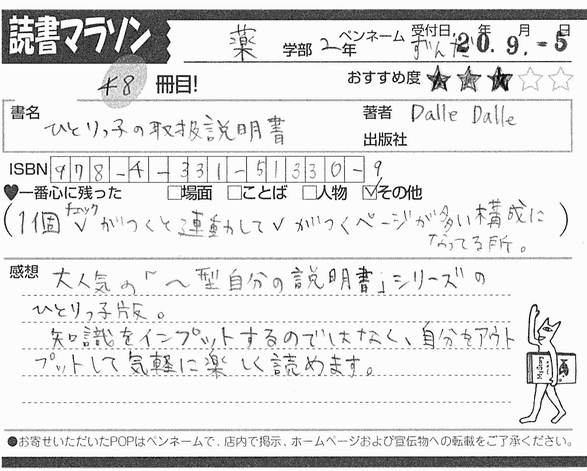 読書マラソン
薬 学部 2年 ペンネーム ずんだ 受付日: 年 月 日 20.9.-5
48 冊目! おすすめ度 ★★★☆☆
書名 ひとりっ子の取扱説明書 著者 Dalle Dalle
出版社
ISBN 978-4-331-51330-9
♥一番心に残った □場面 □ことば □人物 ☑その他
(1個チェック✓がつくと連動して✓がつくページが多い構成に
なってる所。)
感想 大人気の「〜型自分の説明書」シリーズの
ひとりっ子版。
知識をインプットするのではなく、自分をアウト
プットして気軽に楽しく読めます。
●お寄せいただいたPOPはペンネームで、店内で掲示、ホームページおよび宣伝物への転載をご了承ください。